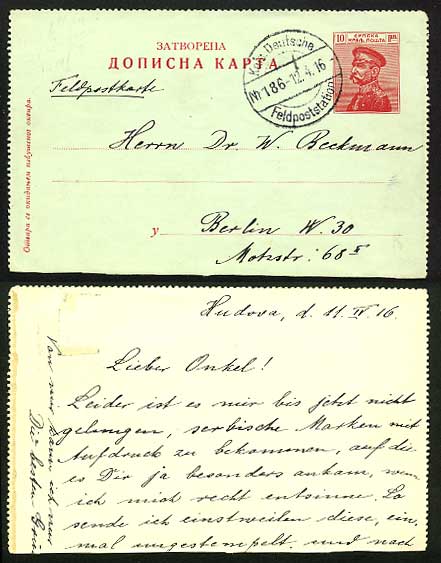 ЗАТВОРЕНА
ДОПИСНА КАРТА
10 СРПСКА КРАЉ. ПОШТА ПР.
Kais. Deutsche
Nr 186 - 12.4.16
Feldpoststation
Feldpostkarte
Herrn Dr. W. Beckmann
у Berlin W. 30
Motzstr: 68 II
Отвара се окидањем избушеног оквира.
Hudova, d. 11. IV. 16.
Lieber Onkel!
Leider ist es mir bis jetzt nicht
gelungen, serbische Marken mit
Aufdruck zu bekommen, auf die
es Dir ja besonders ankam, wenn
ich mich recht entsinne. So
sende ich einstweilen diese, ein-
mal ungestempelt und nach
Von mir kann ich nur
Die besten